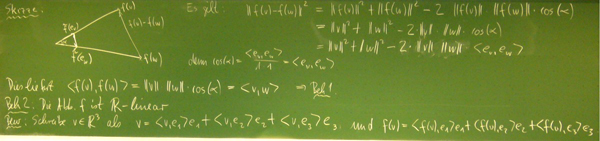 Skizze:
f(v)
f(v)-f(w)
f(e_v)
f(w)
Es gilt: ||f(v)-f(w)||² = ||f(v)||² + ||f(w)||² - 2 ||f(v)|| ||f(w)|| · cos(α)
= ||v||² + ||w||² - 2 ||v|| · ||w|| · cos(α)
= ||v||² + ||w||² - 2 · ||v|| ||w|| <e_v, e_w>
denn cos(α) = <e_v, e_w> / 1·1 = <e_v, e_w>
Dies liefert <f(v), f(w)> = ||v|| ||w|| · cos(α) = <v, w> ⇒ Beh 1.
Beh 2. Die Abb. f ist ℝ-linear
Bew. Schreibe v∈ℝ³ als v = <v, e_1>e_1 + <v, e_2>e_2 + <v, e_3>e_3. und f(v) = <f(v), e_1>e_1 + <f(v), e_2>e_2 + <f(v), e_3>e_3